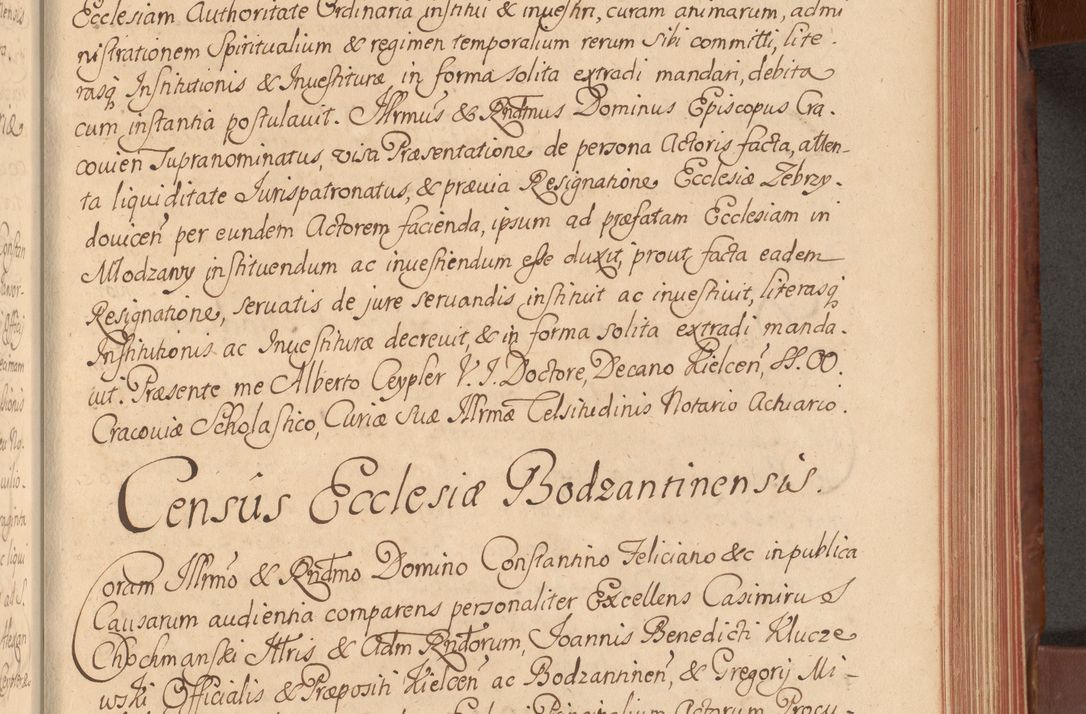 Ecclesiam Authoritate Ordinaria institui & investiri, curam animarum, admi
nistrationem Spiritualium & regimen temporalium rerum sibi committi, lite-
rasq Institutionis & Investituræ in forma solita extradi mandari, debita
cum instantia postulavit. Illrmus & Rndmus Dominus Episcopus Cra-
covien Supranominatus, visa Præsentatione de persona Actoris facta, atten-
ta liquiditate Jurispatronatus, & prævia Resignatione Ecclesiæ Zebrzy-
dovicen per eundem Actorem facienda, ipsum ad præfatam Ecclesiam in
Mlodzawy instituendum ac investiendum esse duxit, prout facta eadem
Resignatione, servatis de jure servandis instituit ac investivit, literasq
Institutionis ac Investituræ decrevit, & in forma solita extradi manda-
vit. Præsente me Alberto Ceypler V. J. Doctore, Decano Kielcen, SS. OO.
Cracoviæ Scholastico, Curiæ Suæ Illrmæ Celsitudinis Notario Actuario.
Census Ecclesiæ Bodzantinensis.
Coram Illrmo & Rndmo Domino Constantino Feliciano &c in publica
Causarum audientia comparens personaliter Excellens Casimirus
Chochmanski Illris & Adm Rndorum, Joannis Benedicti Klucze
wski Officialis & Præpositi Kielcen ac Bodzantinen, & Gregorij Mi-
Principalium Actorum Procu-